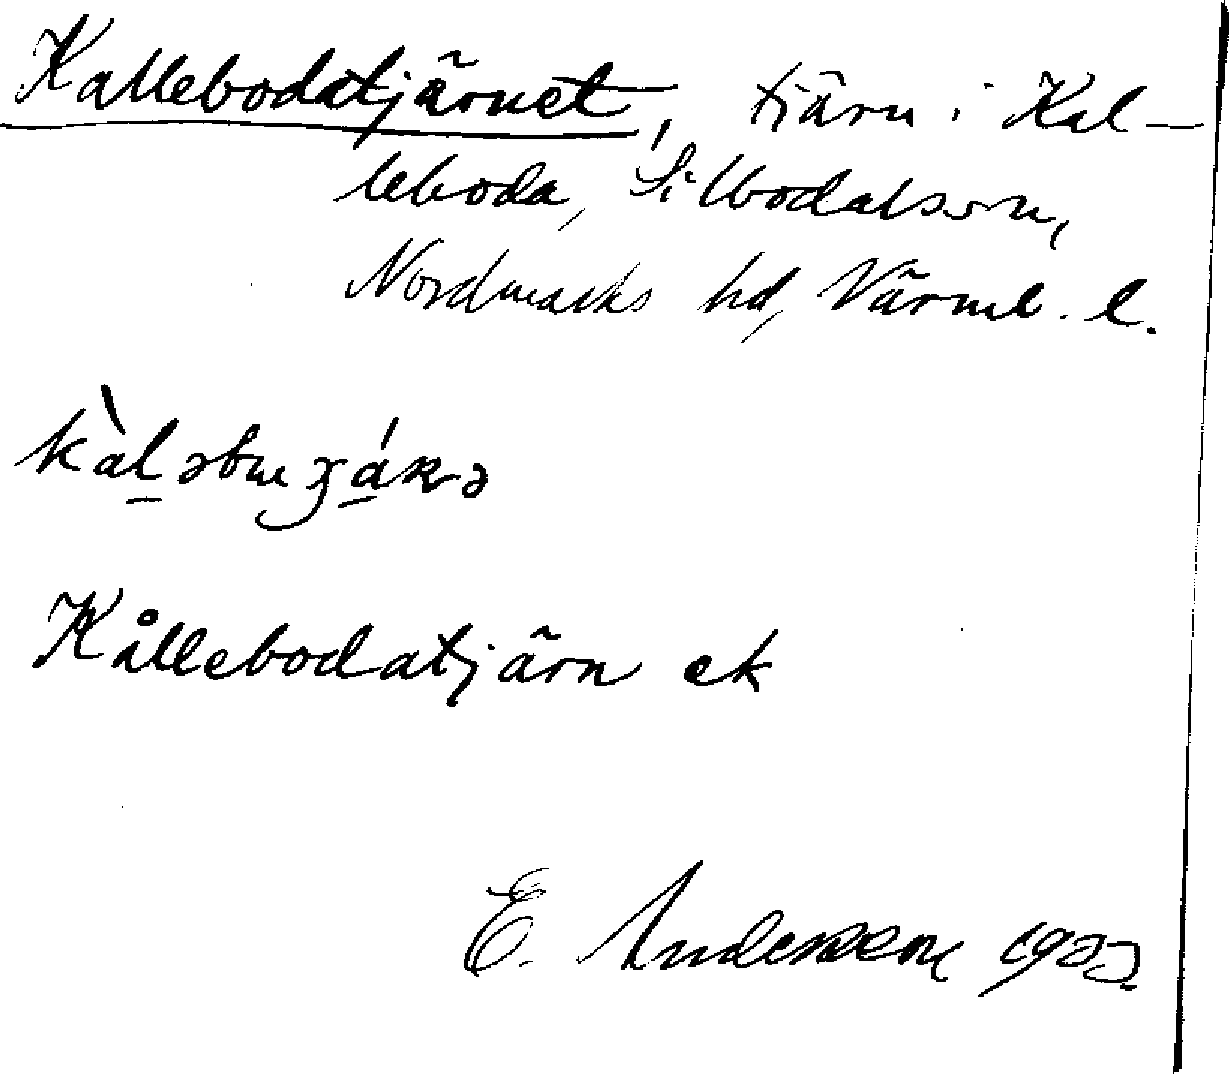 Kallebodatjärnet, tjärn i Kal-
leboda, Silbodals sn,
Nordmarks hd, Värml. l.
Kållebodatjärn ek
E. Andersson